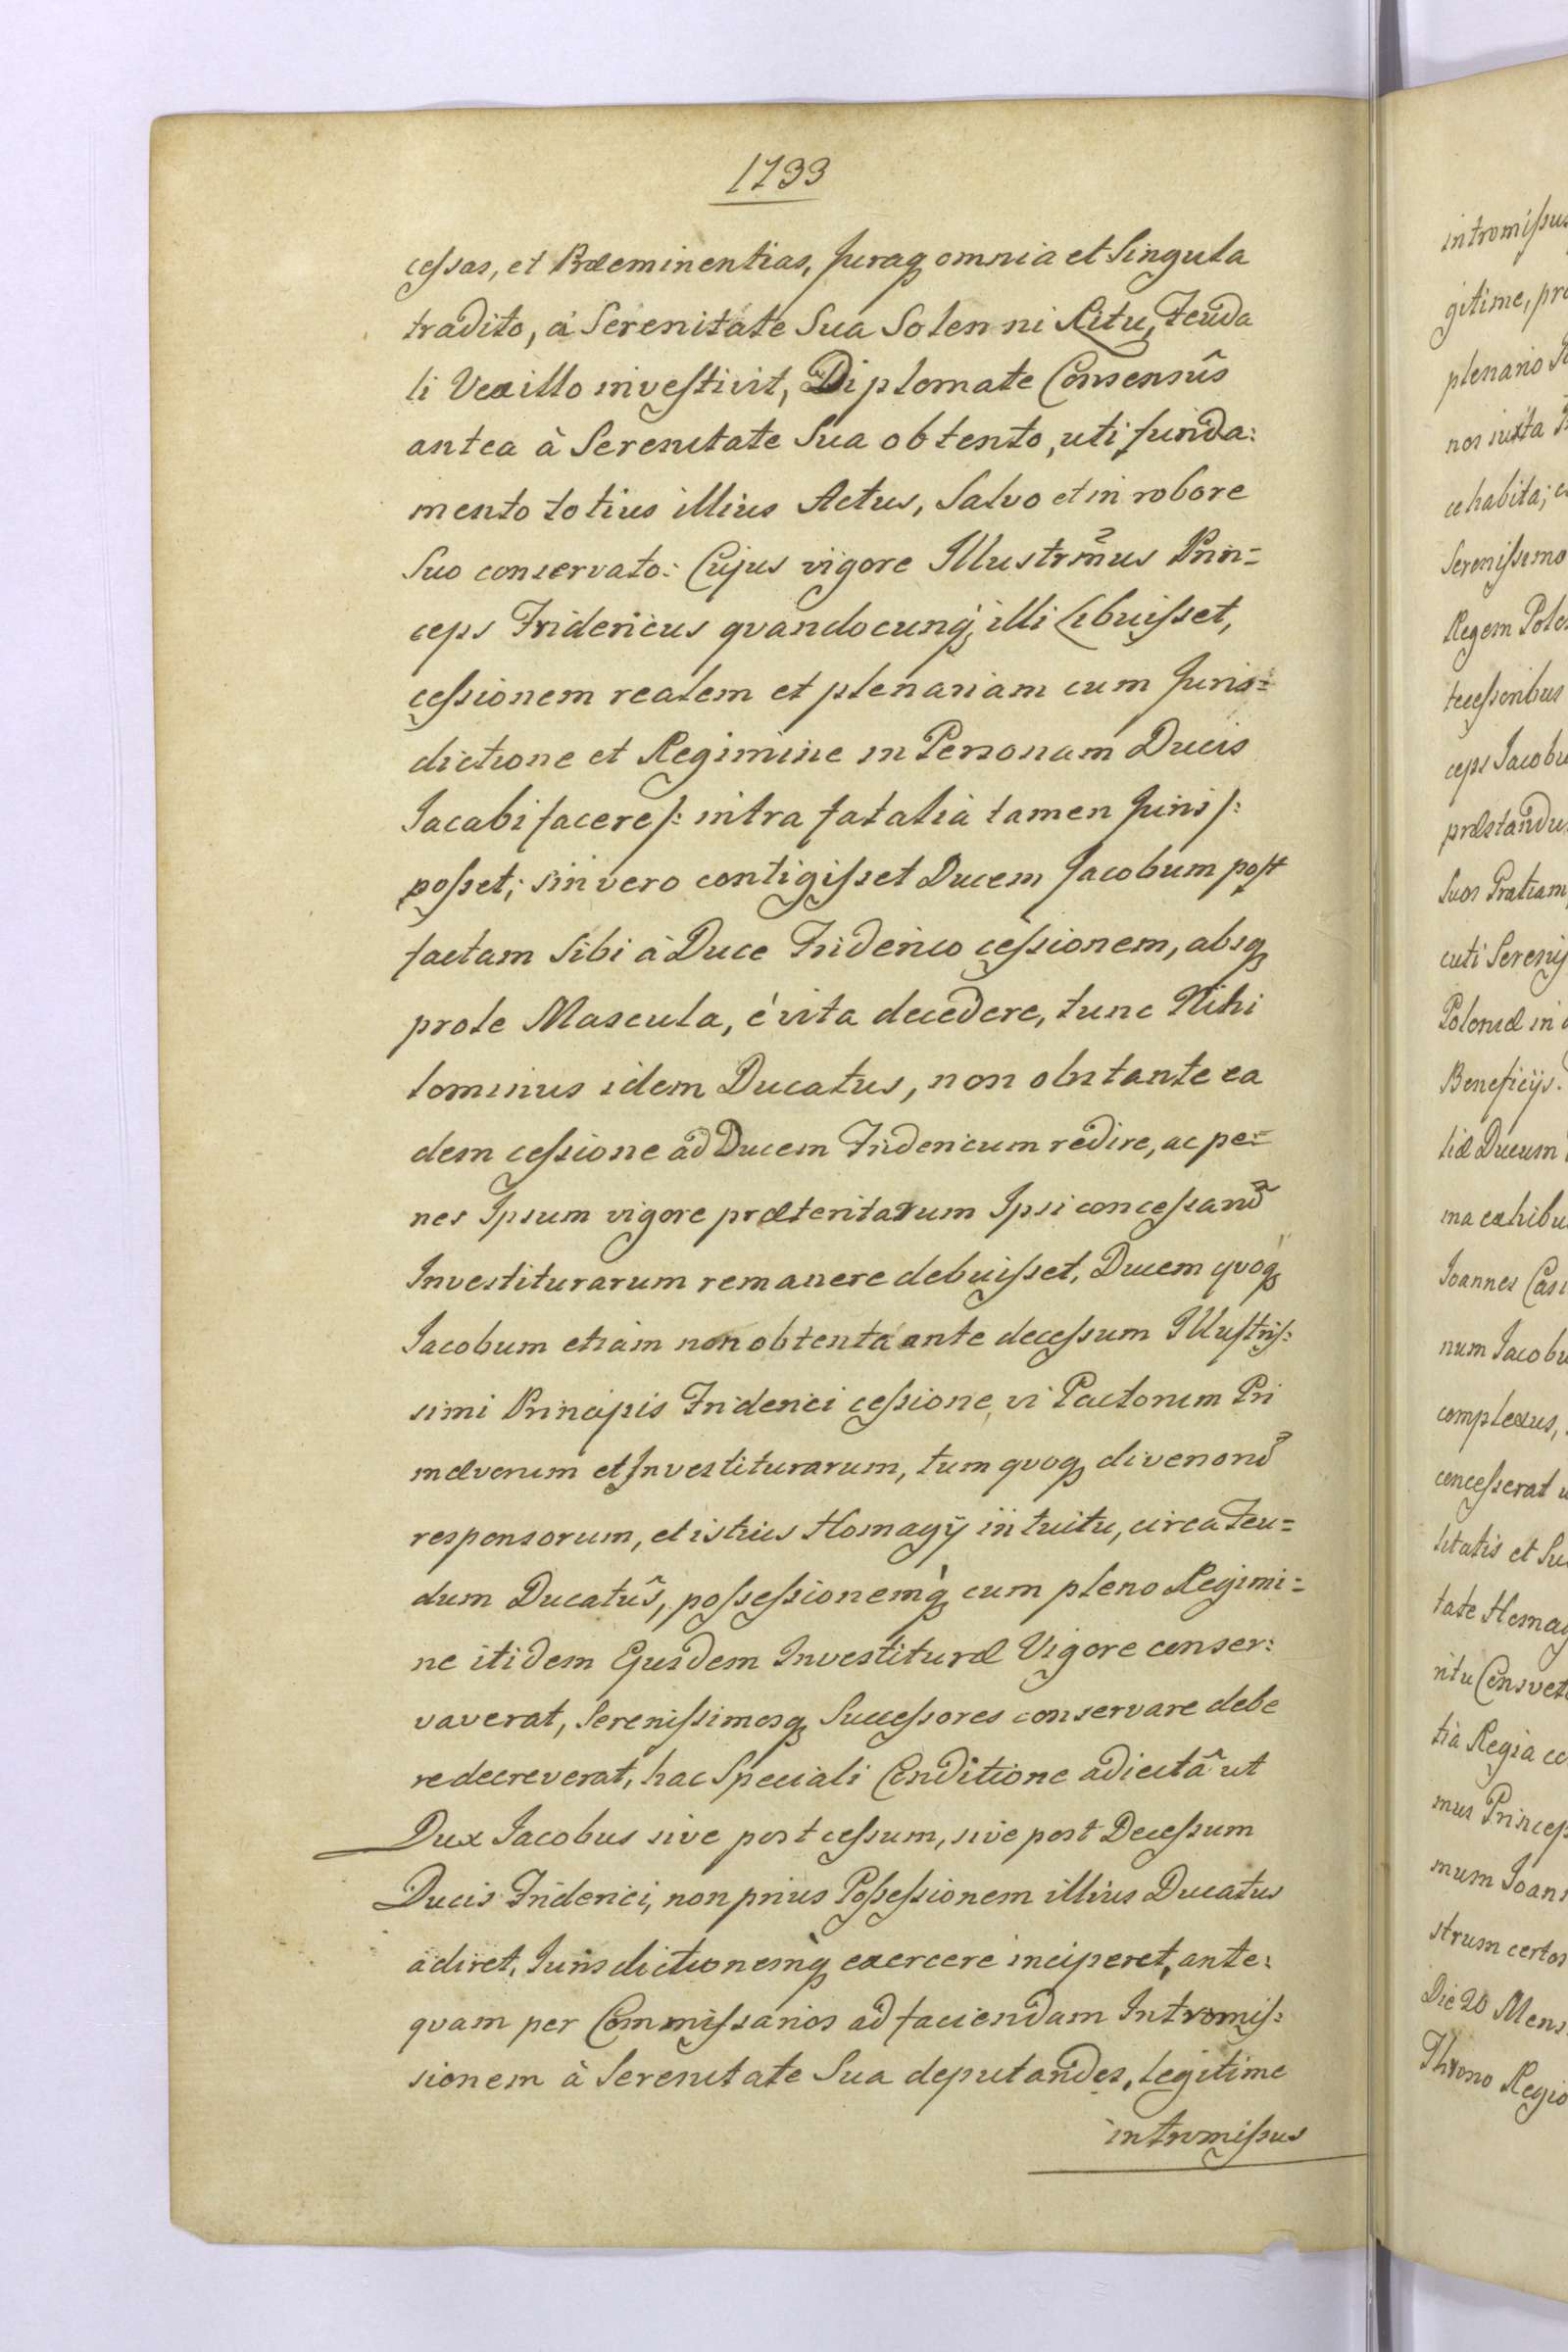 1793
cessas, et Præeminentias, Juraq omnia et Singula
tradito, á Serenitate Sua Solenni Ritu, Feuda
li Vexillo investivit, Diplomate Consensûs
antea à Serenitate Sua obtento, uti funda:
mento totius illius Actus, Salvo et in robore
Suo conservato: Cujus vigore Illustrm̃us Prin=
ceps Fridericus quandocunq, illi libuisset,
cessionem realem et plenariam cum Juris=
dictione et Regimine in Personam Ducis
Jacobi facere /: intra fatalia tamen Juris /:
posset; sin vero contigisset Ducem Jacobum post
factam Sibi à Duce Friderico cessionem, absq
prole Mascula, é vita decedere, tunc Nihi
lominus idem Ducatus, non obstante ea
dem cessione ad Ducem Fridericum redire, ac pe=
nes Ipsum vigore præteritarum Ipsi concessarũ
Investiturarum remanere debuisset, Ducem quoq
Jacobum etiam non obtentá ante decessum Illustris:
simi Principis Friderici cessione, vi Pactorum Pri
mævorum et Investiturarum, tum quoq diversorũ
responsorum, et istius Homagÿ intuitu, circa Feu=
dum Ducatûs, possessionemq cum pleno Regimi=
ne itidem Ejusdem Investituræ Vigore conser:
vaverat, Serenissimosq Successores conservare debe
re decreverat, hac Speciali Conditione adiectâ ut
Dux Jacobus sive post cessum, sive post Decessum
Ducis Friderici, non prius Possessionem illius Ducatus
adiret, Jurisdictionemq exercere inciperet, ante:
quam per Commissarios ad faciendam Intromis:
sionem à Serenitate Sua deputandos, legitime
intromissus
intromissus
gitime, pro
plenario
nos iuxta
ce habita;
Serenissimo
Regem Polo
tecessoribus
ceps Jacobu
præstandu
Suos Gratiam
cuti Sereniss
Poloniæ in
Beneficijs.
liæ Ducum
ma exhibu
Joannes Casi
num Jacobu
complexus,
concesserat
sitatis et Su
tate Homag
ritu Consvet
tia Regia co
mus Princeps
mum Joann
strum certos
Die 20 Mens
Throno Regio